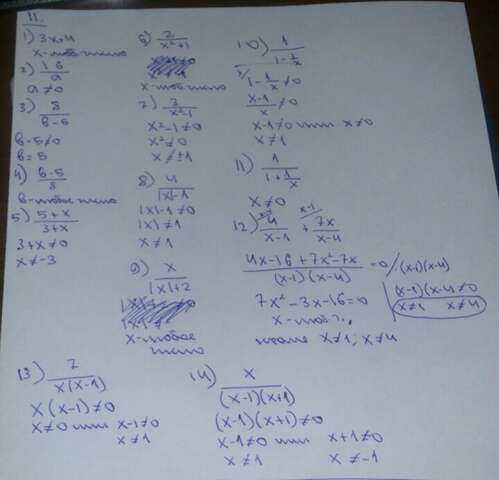 11.
1) 3x+4
x-любое число
2) 16/a
a≠0
3) 8/(b-5)
b-5≠0
b=5
4) (b-5)/8
b-любое число
5) (5+x)/(3+x)
3+x≠0
x≠-3
6) 2/(x²+1)
x-любое число
7) 3/(x²-1)
x²-1≠0
x²≠0
x≠±1
8) 4/(|x|-1)
|x|-1≠0
|x|≠1
x≠1
9) x/(|x|+2)
x-любое число
10) 1/(1-1/x)
1-1/x≠0
(x-1)/x≠0
x-1≠0 или x≠0
x≠1
11) 1/(1+1/x)
x≠0
12) 4/(x-1) + 7x/(x-4)
(4x-16+7x²-7x)/((x-1)(x-4)) =0 /(x-1)(x-4)
7x²-3x-16=0
(x-1)(x-4)≠0
x≠1 x≠4
кроме x≠1; x≠4
13) 7/(x(x-1))
x(x-1)≠0
x≠0 или x-1≠0
x≠1
14) x/((x-1)(x+1))
(x-1)(x+1)≠0
x-1≠0 или x+1≠0
x≠1 x≠-1